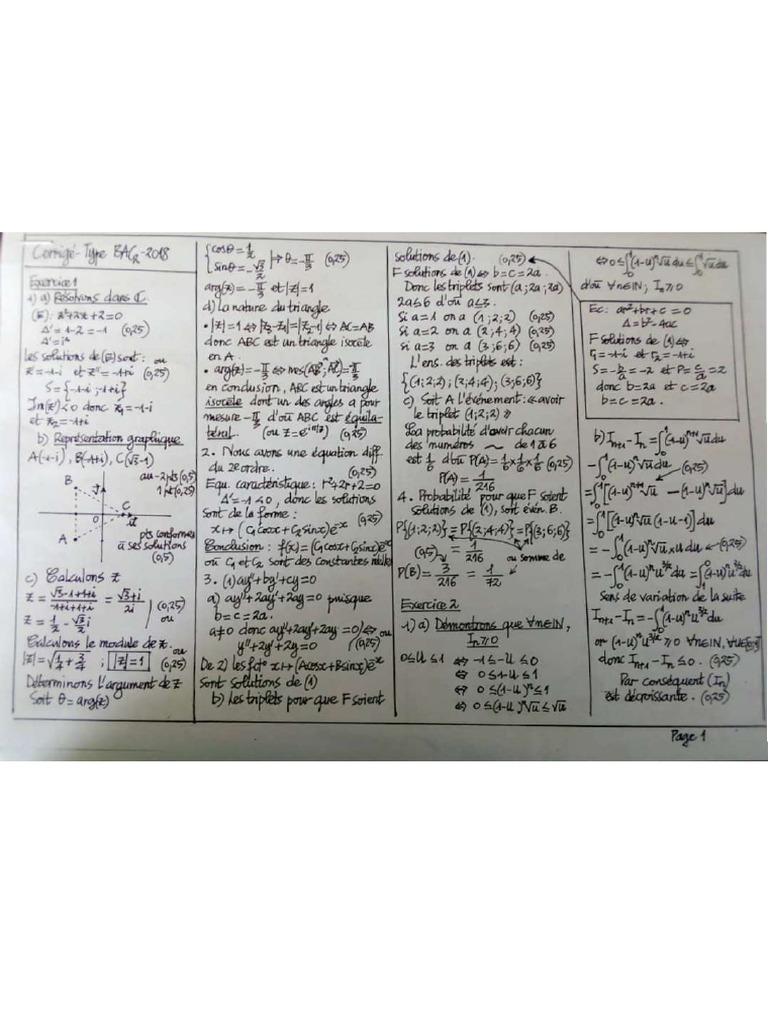 Corrigé-Type BAC R-2018
Exercice 1
1) a) Résolvons dans ℂ.
(E): z²+2z+2=0
Δ' = 1-2 = -1 (0,25)
Δ' = i²
les solutions de (E) sont : ou
z' = -1-i et z'' = -1+i (0,25)
S = {-1-i ; -1+i}
Im(z') < 0 donc z₁ = -1-i
et z₂ = -1+i
b) Représentation graphique
A(-1-i), B(-1+i), C(√3-1)
au-2pts (0,5)
1pt (0,25)
B
C
A
0
pts conformes
à ses solutions
(0,5)
c) Calculons z
z = (√3-1+1+i)/(-1+i+1+i) = (√3+i)/2i
(0,25)
ou
z = 1/2 - √3/2 i
Calculons le module de z. ou
|z| = √(1/4+3/4) ; |z|=1 (0,25)
Déterminons l'argument de z
Soit θ = arg(z)
{cosθ = 1/2
{sinθ = -√3/2 |⇒ θ = -π/3 (0,25)
arg(z) = -π/3 et |z| = 1
d) La nature du triangle
• |z|=1 ⇔ |z₃-z₁|=|z₂-z₁| ⇔ AC=AB
donc ABC est un triangle isocèle
en A.
• arg(z) = -π/3 ⇔ mes(AB;AC) = -π/3
en conclusion, ABC est un triangle
isocèle dont un des angles a pour
mesure -π/3 d'où ABC est équila-
téral. (ou z = e^(-iπ/3)) (0,25)
2. Nous avons une équation diff
du 2e ordre. (0,25)
Equ. caractéristique : r²+2r+2=0
Δ' = -1 < 0, donc les solutions
sont de la forme :
x ↦ (C₁cosx + C₂sinx)e^-x (0,25)
Conclusion : f(x) = (C₁cosx + C₂sinx)e^-x
où C₁ et C₂ sont des constantes réelles
3. (1) ay''+by'+cy=0
a) ay''+2ay'+2ay=0 puisque
b=c=2a.
a≠0 donc ay''+2ay'+2ay=0 ⇔ ou
y''+2y'+2y=0 (0,25)
De 2) les fct° x ↦ (Acosx+Bsinx)e^-x
sont solutions de (1)
b) Les triplets pour que F soient
solutions de (1). (0,25)
F solutions de (1) ⇔ b=c=2a.
Donc les triplets sont (a;2a;2a)
2a≤6 d'où a≤3.
Si a=1 on a (1;2;2) (0,25)
Si a=2 on a (2;4;4) (0,25)
Si a=3 on a (3;6;6) (0,25)
L'ens. des triplets est :
{(1;2;2); (2;4;4); (3;6;6)}
c) Soit A l'évènement : «avoir
le triplet (1;2;2)»
La probabilité d'avoir chacun
des numéros ~ de 1 à 6
est 1/6 d'où P(A) = 1/6×1/6×1/6 (0,25)
P(A) = 1/216
4. Probabilité pour que F soient
solutions de (1), sont évèn. B.
P{(1;2;2)} = P{(2;4;4)} = P{(3;6;6)}
(0,5) = 1/216 ou somme de
P(B) = 3/216 = 1/72
Exercice 2
1) a) Démontrons que ∀n∈IN,
Iₙ ≥ 0
0≤U≤1 ⇔ -1≤-U≤0
⇔ 0≤1-U≤1
⇔ 0≤(1-U)ⁿ≤1
⇔ 0≤(1-U)ⁿ√u≤√u
⇔ 0≤∫₀¹(1-U)ⁿ√u du≤∫₀¹√u du
d'où ∀n∈IN; Iₙ≥0
Ec: ar²+br+c=0
Δ=b²-4ac
F solutions de (1) ⇔
r₁=-1-i et r₂=-1+i
S=-b/a=-2 et P=c/a=2
donc b=2a et c=2a
b=c=2a.
b) Iₙ₊₁-Iₙ = ∫₀¹(1-U)ⁿ⁺¹√u
-∫₀¹(1-U)ⁿ√u du (0,25)
=∫₀¹[(1-U)ⁿ⁺¹√u -(1-U)ⁿ√u]du
=∫₀¹[(1-U)ⁿ√u(1-U-1)]du
=-∫₀¹(1-U)ⁿ√u×u du (0,25)
=-∫₀¹(1-U)ⁿu^3/2du=∫₁⁰(1-U)ⁿu^3/2du
Sens de variation de la suite
Iₙ₊₁-Iₙ=-∫₀¹(1-U)ⁿu^3/2du
or (1-U)ⁿU^3/2≥0 ∀n∈IN, ∀U∈[0;1]
donc Iₙ₊₁-Iₙ≤0. (0,25)
Par conséquent (Iₙ)
est décroissante. (0,25)
Page 1